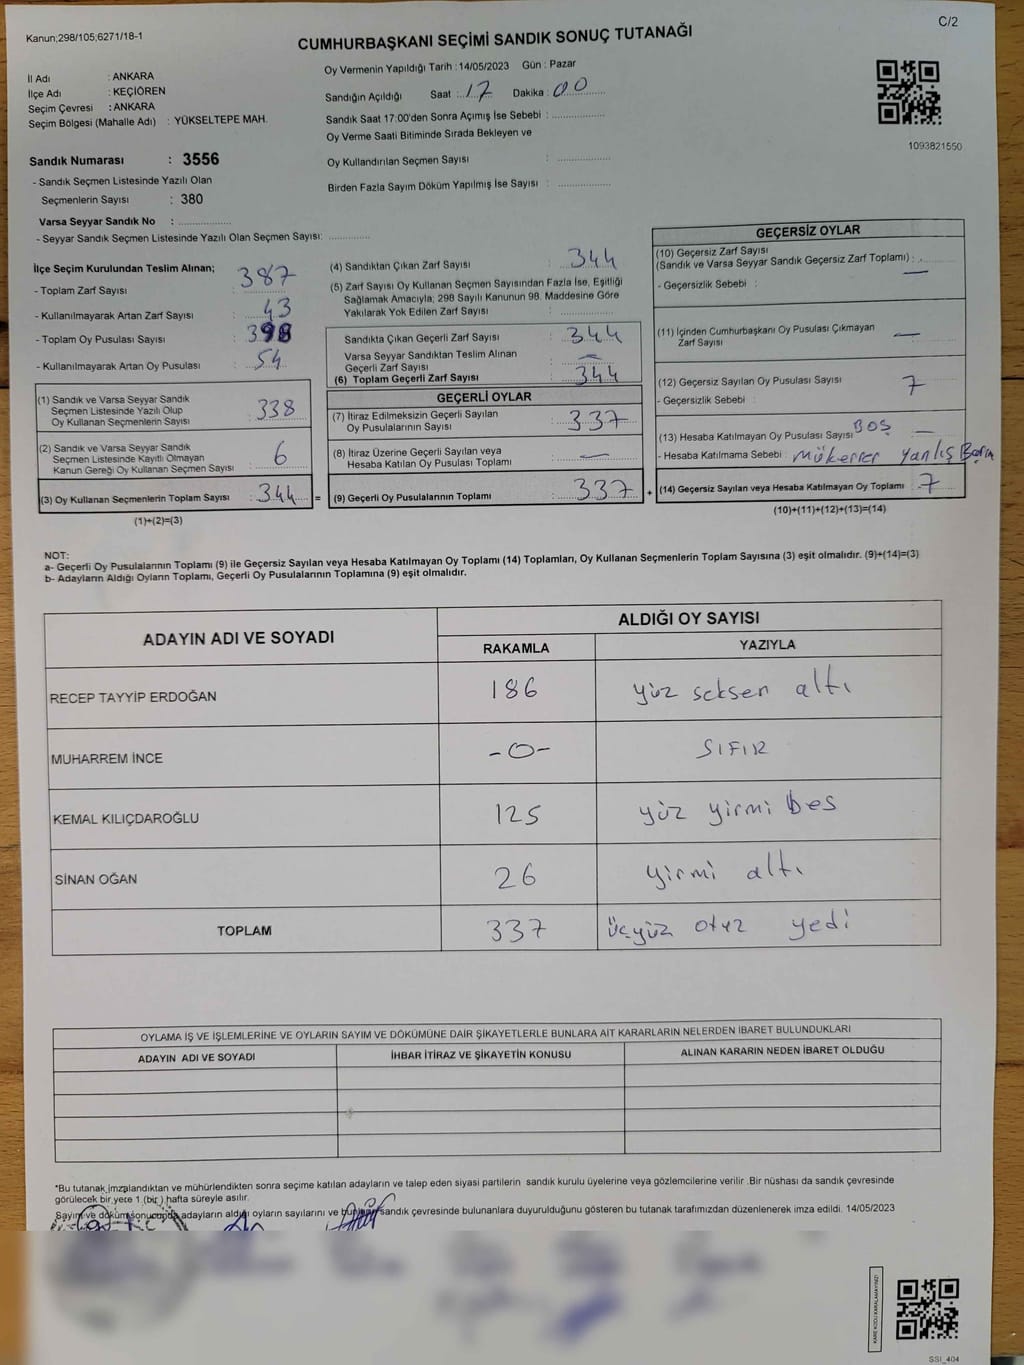 Kanun;298/105;6271/18-1
C/2
CUMHURBAŞKANI SEÇİMİ SANDIK SONUÇ TUTANAĞI
İl Adı : ANKARA
İlçe Adı : KEÇİÖREN
Seçim Çevresi : ANKARA
Seçim Bölgesi (Mahalle Adı) : YÜKSELTEPE MAH.
Sandık Numarası : 3556
- Sandık Seçmen Listesinde Yazılı Olan
Seçmenlerin Sayısı : 380
Varsa Seyyar Sandık No : ..................
- Seyyar Sandık Seçmen Listesinde Yazılı Olan Seçmen Sayısı: .............
Oy Vermenin Yapıldığı Tarih : 14/05/2023 Gün : Pazar
Sandığın Açıldığı Saat : 17 Dakika : 00
Sandık Saat 17:00'den Sonra Açımış İse Sebebi : ..................
Oy Verme Saati Bitiminde Sırada Bekleyen ve
Oy Kullandırılan Seçmen Sayısı : ..................
Birden Fazla Sayım Döküm Yapılmış İse Sayısı : ..................
1093821550
İlçe Seçim Kurulundan Teslim Alınan;
- Toplam Zarf Sayısı : 387
- Kullanılmayarak Artan Zarf Sayısı : 43
- Toplam Oy Pusulası Sayısı : 398
- Kullanılmayarak Artan Oy Pusulası : 54
(1) Sandık ve Varsa Seyyar Sandık
Seçmen Listesinde Yazılı Olup
Oy Kullanan Seçmenlerin Sayısı : 338
(2) Sandık ve Varsa Seyyar Sandık
Seçmen Listesinde Kayıtlı Olmayan
Kanun Gereği Oy Kullanan Seçmen Sayısı : 6
(3) Oy Kullanan Seçmenlerin Toplam Sayısı : 344 =
(1)+(2)=(3)
(4) Sandıktan Çıkan Zarf Sayısı : 344
(5) Zarf Sayısı Oy Kullanan Seçmen Sayısından Fazla İse, Eşitliği
Sağlamak Amacıyla; 298 Sayılı Kanunun 98. Maddesine Göre
Yakılarak Yok Edilen Zarf Sayısı : ..................
Sandıkta Çıkan Geçerli Zarf Sayısı : 344
Varsa Seyyar Sandıktan Teslim Alınan
Geçerli Zarf Sayısı : —
(6) Toplam Geçerli Zarf Sayısı : 344
GEÇERLİ OYLAR
(7) İtiraz Edilmeksizin Geçerli Sayılan
Oy Pusulalarının Sayısı : 337
(8) İtiraz Üzerine Geçerli Sayılan veya
Hesaba Katılan Oy Pusulası Toplamı : —
(9) Geçerli Oy Pusulalarının Toplamı : 337 +
GEÇERSİZ OYLAR
(10) Geçersiz Zarf Sayısı
(Sandık ve Varsa Seyyar Sandık Geçersiz Zarf Toplamı) : —
- Geçersizlik Sebebi :
(11) İçinden Cumhurbaşkanı Oy Pusulası Çıkmayan
Zarf Sayısı —
(12) Geçersiz Sayılan Oy Pusulası Sayısı 7
- Geçersizlik Sebebi :
(13) Hesaba Katılmayan Oy Pusulası Sayısı BOŞ —
- Hesaba Katılmama Sebebi : Mükerrer yanlış
(14) Geçersiz Sayılan veya Hesaba Katılmayan Oy Toplamı : 7
(10)+(11)+(12)+(13)=(14)
NOT:
a- Geçerli Oy Pusulalarının Toplamı (9) ile Geçersiz Sayılan veya Hesaba Katılmayan Oy Toplamı (14) Toplamları, Oy Kullanan Seçmenlerin Toplam Sayısına (3) eşit olmalıdır. (9)+(14)=(3)
b- Adayların Aldığı Oyların Toplamı, Geçerli Oy Pusulalarının Toplamına (9) eşit olmalıdır.
ADAYIN ADI VE SOYADI
ALDIĞI OY SAYISI
RAKAMLA YAZIYLA
RECEP TAYYİP ERDOĞAN 186 yüz seksen altı
MUHARREM İNCE -0- SIFIR
KEMAL KILIÇDAROĞLU 125 yüz yirmi bes
SİNAN OĞAN 26 yirmi altı
TOPLAM 337 üçyüz otuz yedi
OYLAMA İŞ VE İŞLEMLERİNE VE OYLARIN SAYIM VE DÖKÜMÜNE DAİR ŞİKAYETLERLE BUNLARA AİT KARARLARIN NELERDEN İBARET BULUNDUKLARI
ADAYIN ADI VE SOYADI İHBAR İTİRAZ VE ŞİKAYETİN KONUSU ALINAN KARARIN NEDEN İBARET OLDUĞU
*Bu tutanak imzalandıktan ve mühürlendikten sonra seçime katılan adayların ve talep eden siyasi partilerin sandık kurulu üyelerine veya gözlemcilerine verilir .Bir nüshası da sandık çevresinde
görülecek bir yere 1 (bir ) hafta süreyle asılır.
Sayım ve döküm sonucunda adayların aldığı oyların sayılarını ve bunların sandık çevresinde bulunanlara duyurulduğunu gösteren bu tutanak tarafımızdan düzenlenerek imza edildi. 14/05/2023
KARE KODU KARALAMAYINIZ!
SSI_404